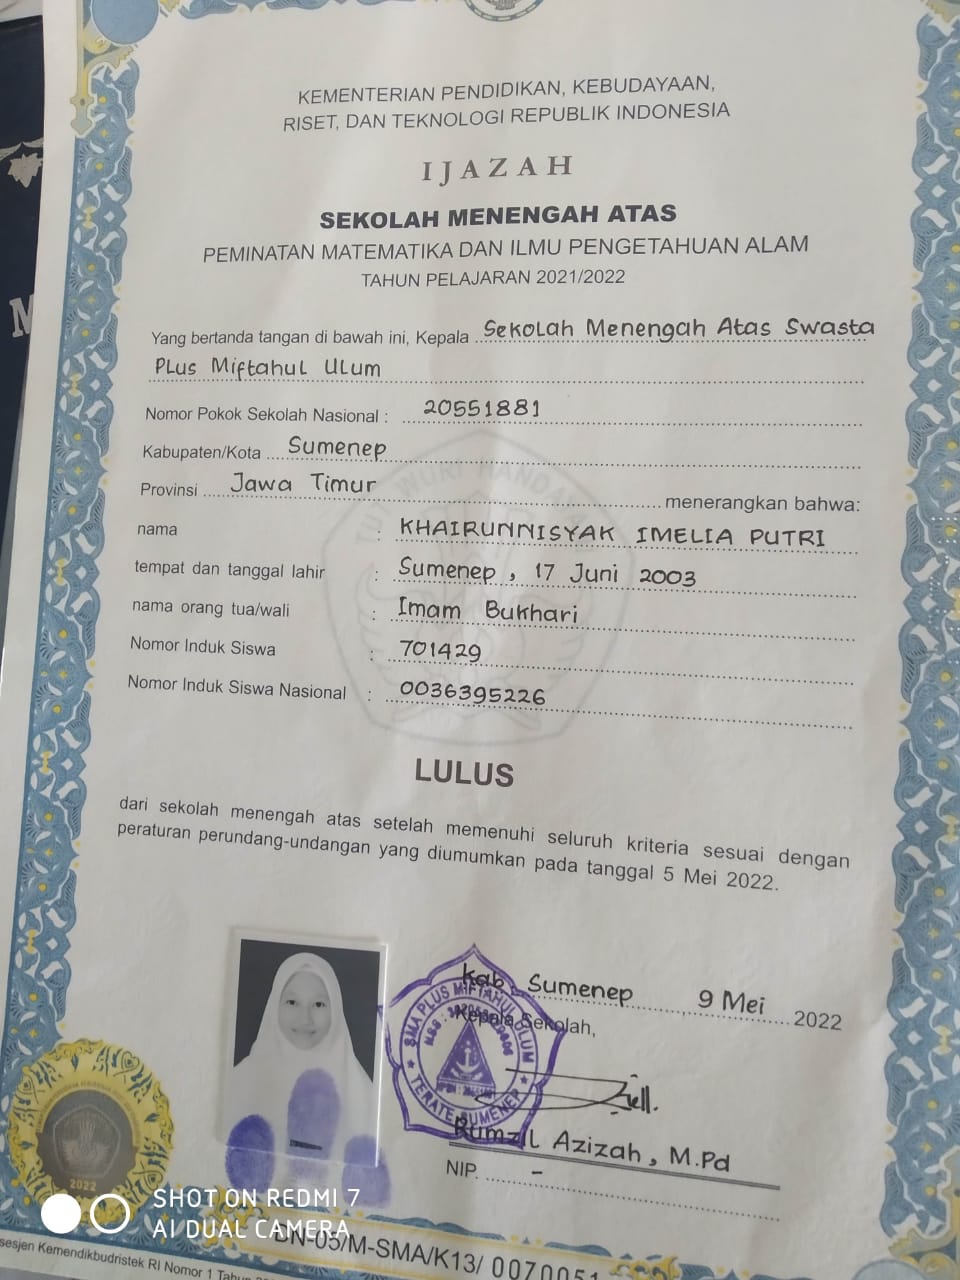 KEMENTERIAN PENDIDIKAN, KEBUDAYAAN,
RISET, DAN TEKNOLOGI REPUBLIK INDONESIA
IJAZAH
SEKOLAH MENENGAH ATAS
PEMINATAN MATEMATIKA DAN ILMU PENGETAHUAN ALAM
TAHUN PELAJARAN 2021/2022
Yang bertanda tangan di bawah ini, Kepala Sekolah Menengah Atas Swasta
Plus Miftahul Ulum
Nomor Pokok Sekolah Nasional : 20551881
Kabupaten/Kota Sumenep
Provinsi Jawa Timur menerangkan bahwa:
nama : KHAIRUNNISYAK IMELIA PUTRI
tempat dan tanggal lahir : Sumenep, 17 Juni 2003
nama orang tua/wali : Imam Bukhari
Nomor Induk Siswa : 701429
Nomor Induk Siswa Nasional : 0036395226
LULUS
dari sekolah menengah atas setelah memenuhi seluruh kriteria sesuai dengan
peraturan perundang-undangan yang diumumkan pada tanggal 5 Mei 2022.
Kab Sumenep, 9 Mei 2022
Kepala Sekolah,
SMA PLUS MIFTAHUL ULUM
TERATE SUMENEP
Rumzil Azizah, M.Pd
NIP. -
2022
SHOT ON REDMI 7
AI DUAL CAMERA
DN-05/M-SMA/K13/ 0070051
Kemendikbudristek RI Nomor 1 Tahun